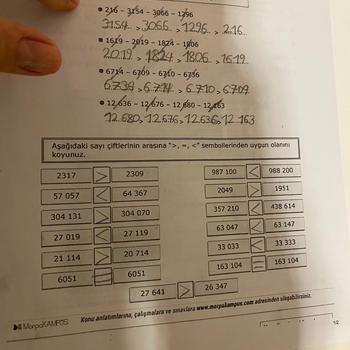 • 216 - 3154 - 3066 - 1296
3154 > 3066 > 1296 > 216
• 1619 - 2019 - 1824 - 1806
2019 > 1824 > 1806 > 1619
• 6714 - 6709 - 6710 - 6736
6736 > 6714 > 6710 > 6709
• 12 636 - 12 676 - 12 680 - 12 163
12 680 > 12 676 > 12 636 > 12 163
Aşağıdaki sayı çiftlerinin arasına ">, =, <" sembollerinden uygun olanını
koyunuz.
2317 > 2309 987 100 < 988 200
57 057 < 64 367 2049 > 1951
304 131 > 304 070 357 210 < 438 614
27 019 < 27 119 63 047 < 63 147
21 114 > 20 714 33 033 < 33 333
6051 = 6051 163 104 = 163 104
27 641 > 26 347
MorpaKAMPÜS Konu anlatımlarına, çalışmalara ve sınavlara www.morpakampus.com adresinden ulaşabilirsiniz.
1/2